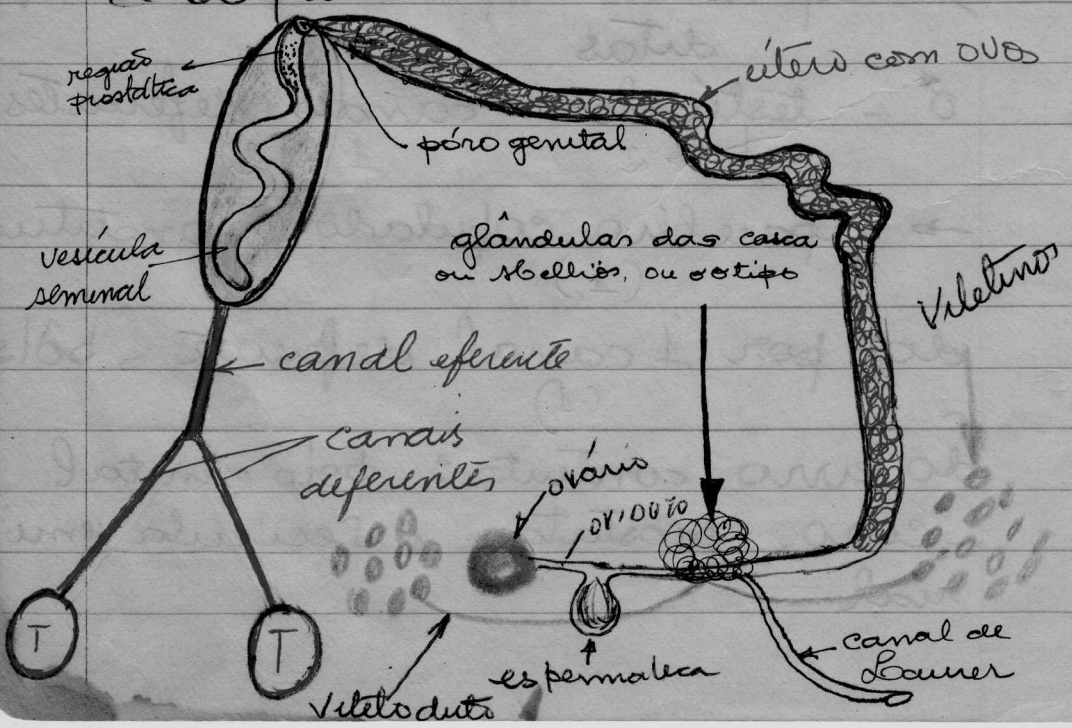 região
prostática
útero com ovos
póro genital
vesícula
seminal
glândulas das casca
ou Mellis, ou ootipo
Viletinos
canal eferente
canais
deferentes
ovário
oviduto
T
T
espermateca
canal de
Laurer
Viteloduto